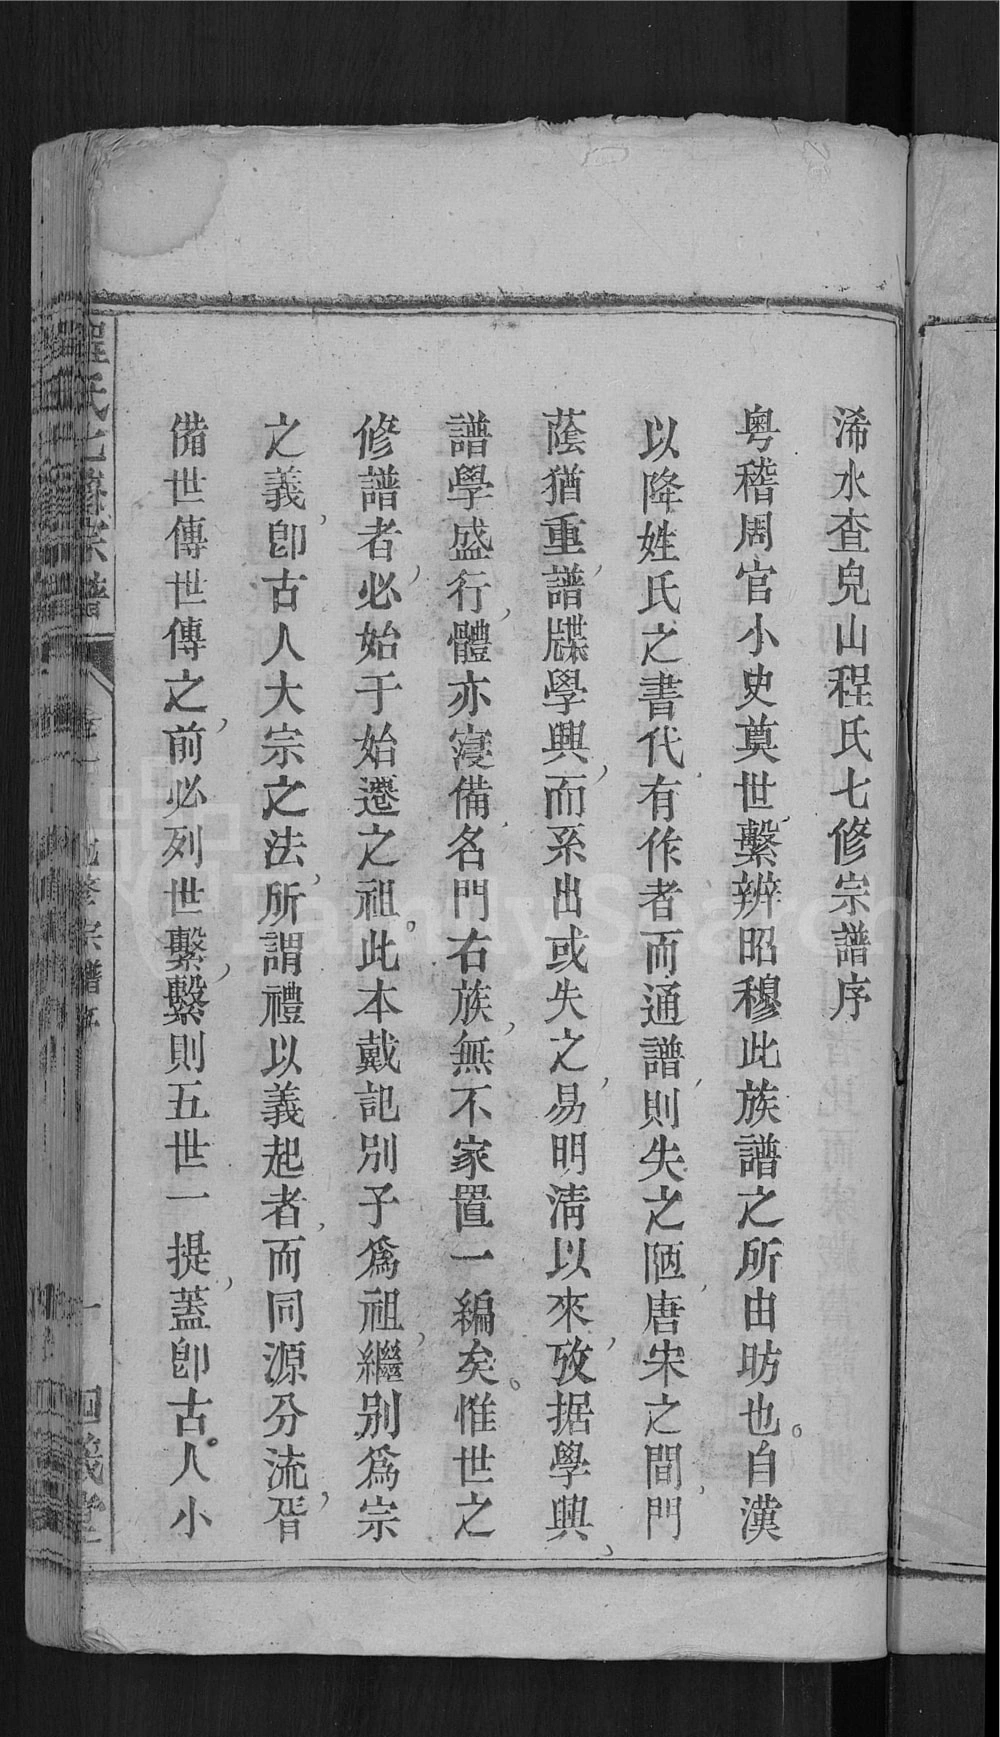 浠水査皃山程氏七修宗譜序
粤稽周官小史奠世繫辨昭穆此族譜之所由昉也。自漢
以降姓氏之書代有作者而通譜則失之陋唐宋之間門
蔭猶重譜牒學興而系出或失之易明淸以來攷据學興
譜學盛行體亦寖備名門右族無不家置一編矣。惟世之
修譜者必始于始遷之祖。此本戴記別子爲祖繼別爲宗
之義卽古人大宗之法所謂禮以義起者而同源分流胥
備世傳世傳之前必列世繫繫則五世一提蓋卽古人小
程氏七修宗譜
卷一
七修宗譜序
一
四義堂
FamilySearch